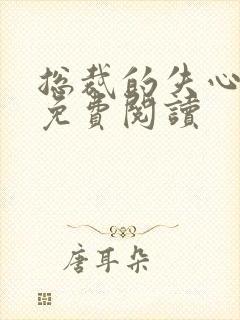 总裁的失心
免費閱讀
唐耳朵